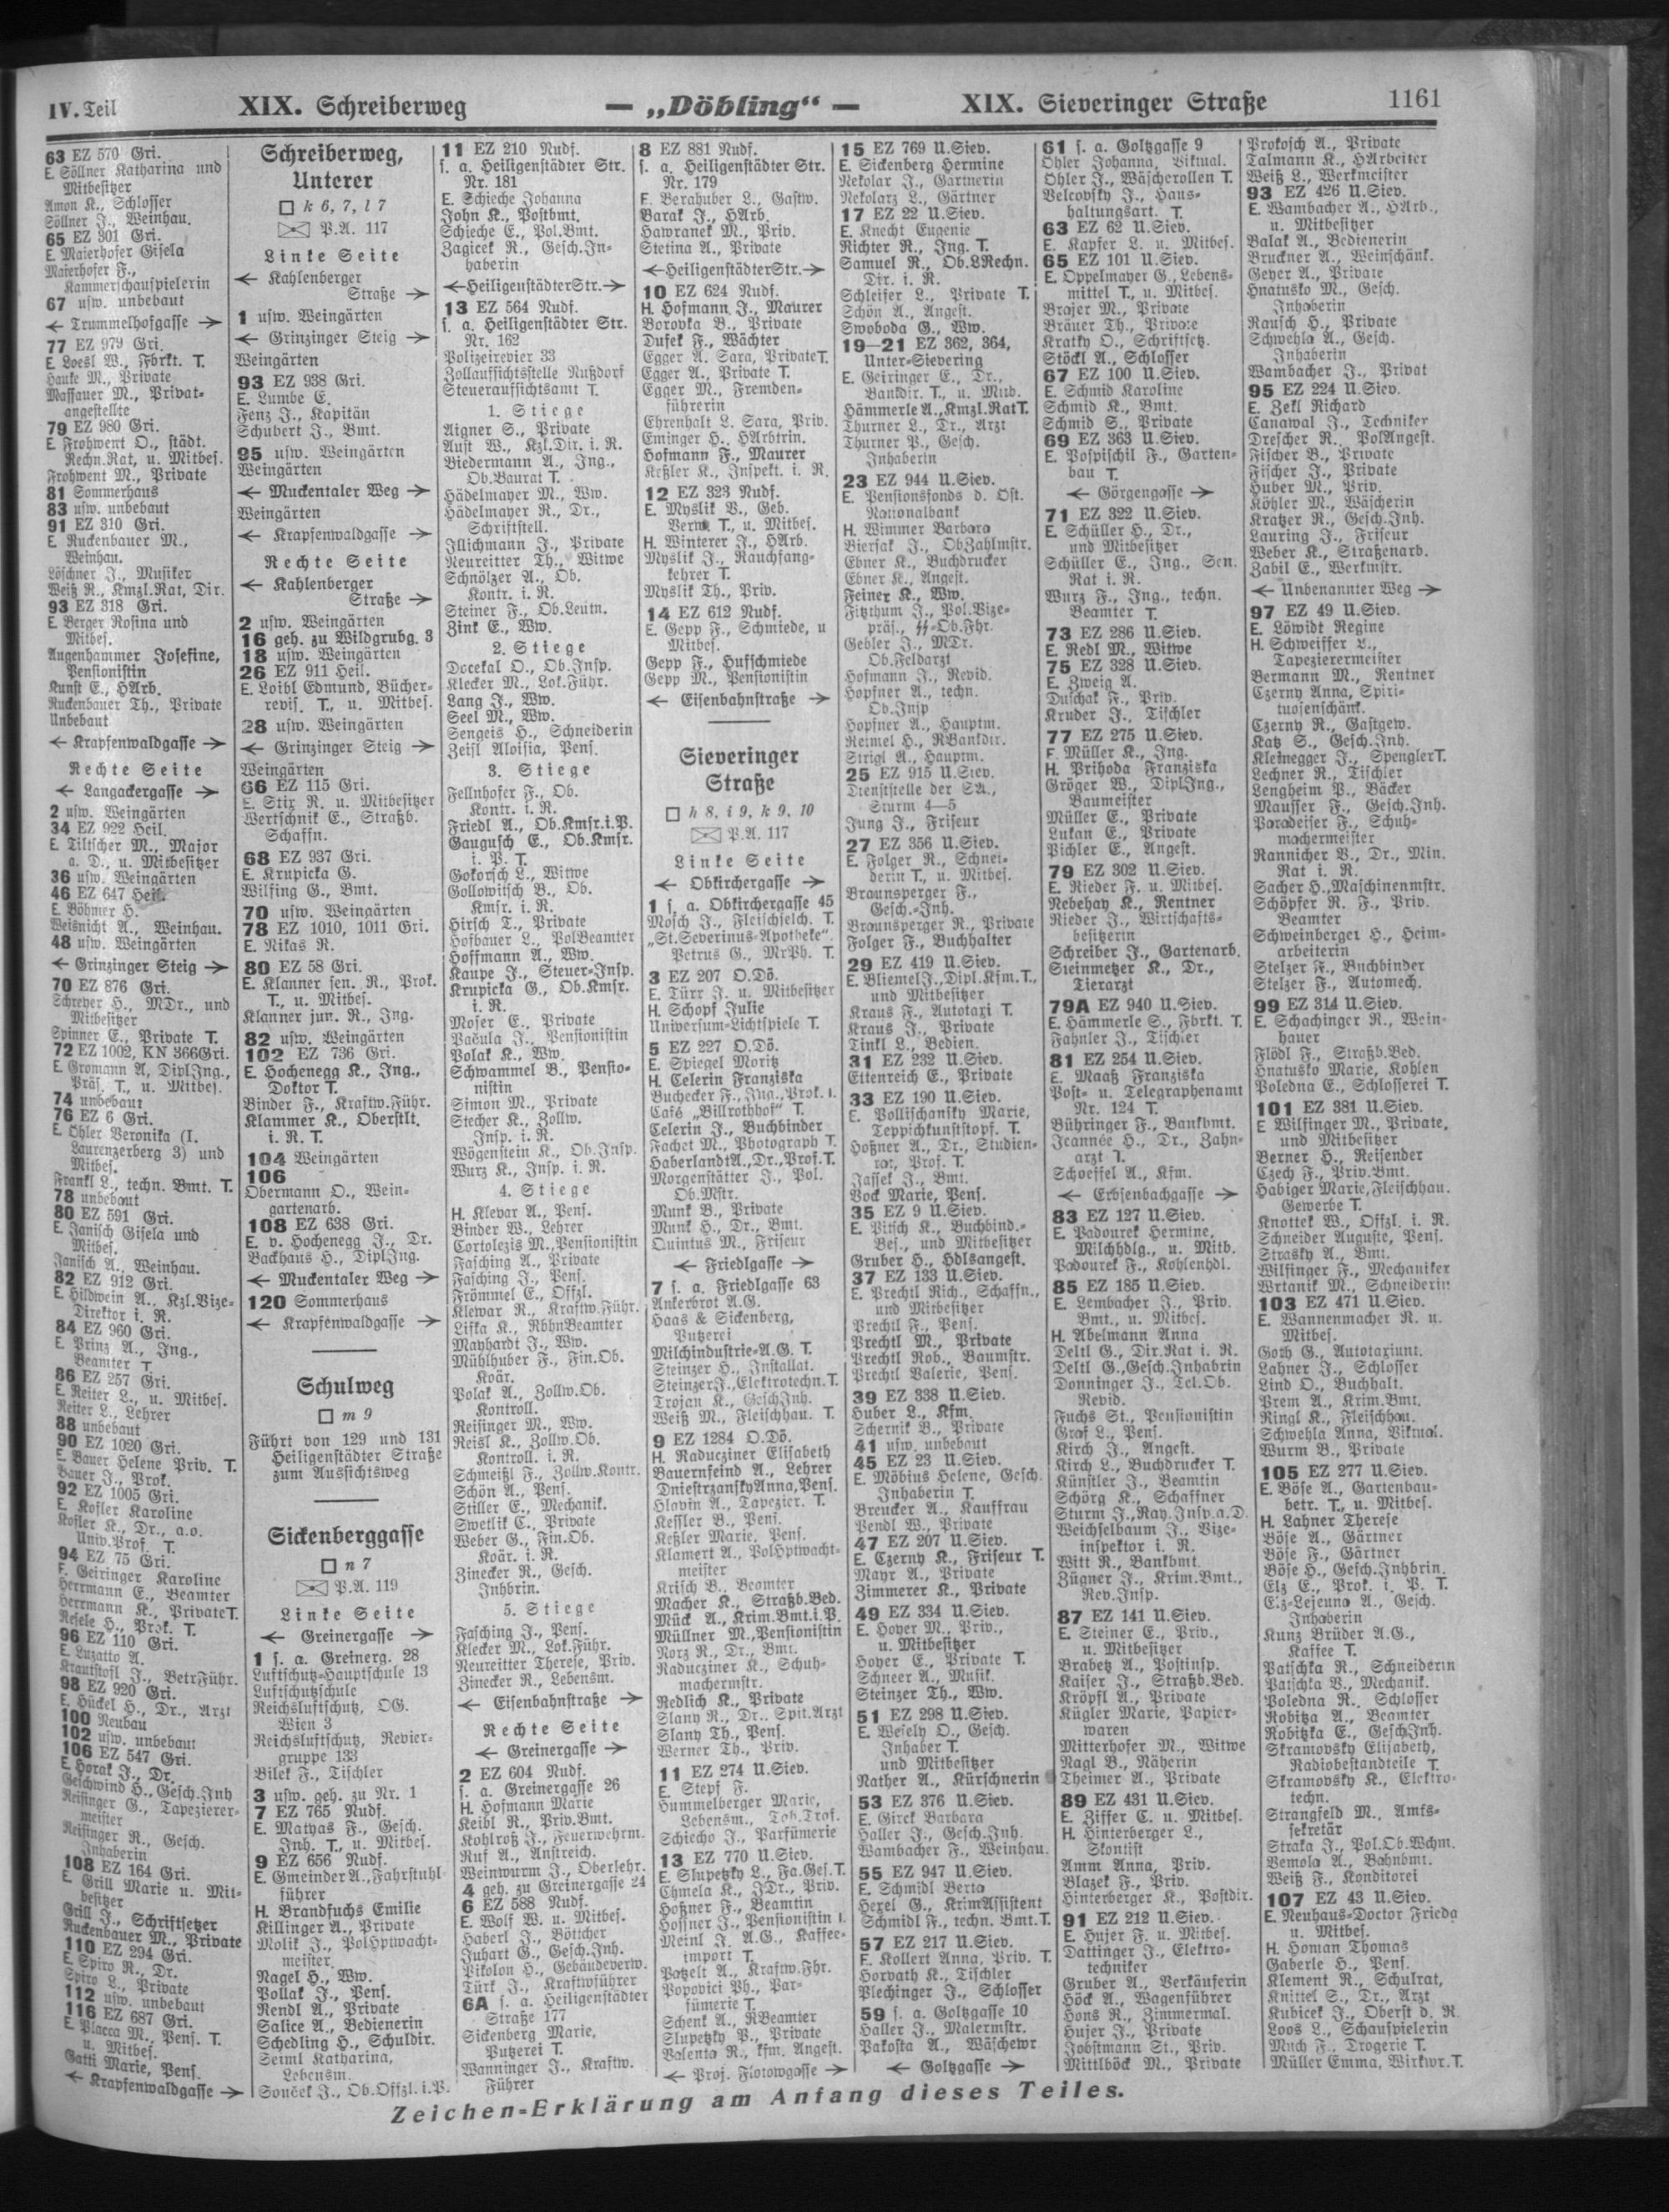 IV. Teil
XIX. Schreiberweg
— „Döbling“ —
XIX. Sieveringer Straße
1161
63 EZ 570 Gri.
E. Söllner Katharina und
Mitbesitzer
Amon K., Schlosser
Söllner J., Weinhau.
65 EZ 301 Gri.
E. Maierhofer Gisela
Maierhofer F.,
Kammerschauspielerin
67 usw. unbebaut
← Trummelhofgasse →
77 EZ 979 Gri.
E. Loesl W., Fbrkt. T.
Hauke M., Private
Massauer M., Privat-
angestellte
79 EZ 980 Gri.
E. Frohwent O., städt.
Rechn.Rat, u. Mitbes.
Frohwent M., Private
81 Sommerhaus
83 usw. unbebaut
91 EZ 310 Gri.
E. Ruckenbauer M.,
Weinhau.
Löschner J., Musiker
Weiß R., Kmzl.Rat, Dir.
93 EZ 318 Gri.
E. Berger Rosina und
Mitbes.
Augenhammer Josefine,
Pensionistin
Kunst E., HArb.
Ruckenbauer Th., Private
Unbebaut
← Krapfenwaldgasse →
Rechte Seite
← Langackergasse →
2 usw. Weingärten
34 EZ 922 Heil.
E. Tiltscher M., Major
a. D., u. Mitbesitzer
36 usw. Weingärten
46 EZ 647 Heil.
E. Böhmer H.
Weisnicht A., Weinhau.
48 usw. Weingärten
← Grinzinger Steig →
70 EZ 876 Gri.
Schreyer H., MDr., und
Mitbesitzer
Spinner E., Private T.
72 EZ 1002, KN 366Gri.
E. Gromann A, DiplJng.,
Präs. T., u. Mitbes.
74 unbebaut
76 EZ 6 Gri.
E. Ohler Veronika (I.
Laurenzerberg 3) und
Mitbes.
Frankl L., techn. Bmt. T.
78 unbebaut
80 EZ 591 Gri.
E. Janisch Gisela und
Mitbes.
Janisch A., Weinhau.
82 EZ 912 Gri.
E. Hildwein A., Kzl.Vize-
Direktor i. R.
84 EZ 960 Gri.
E. Prinz A., Ing.,
Beamter T
86 EZ 257 Gri.
E. Reiter L., u. Mitbes.
Reiter L., Lehrer
88 unbebaut
90 EZ 1020 Gri.
E. Bauer Helene Priv. T.
Bauer J., Prok.
92 EZ 1005 Gri.
E. Kofler Karoline
Kofler K., Dr., a.o.
Univ.Prof. T.
94 EZ 75 Gri.
E. Geiringer Karoline
Herrmann E., Beamter
Herrmann K., PrivateT.
Resele H., Prok. T.
96 EZ 110 Gri.
E. Luzatto A.
Krautstofl J., BetrFühr.
98 EZ 920 Gri.
E. Hückel H., Dr., Arzt
100 Neubau
102 usw. unbebaut
106 EZ 547 Gri.
E. Horak J., Dr.
Geschwind H., Gesch.Inh
Reisinger G., Tapezierer-
meister
Reisinger R., Gesch.
Inhaberin
108 EZ 164 Gri.
E. Grill Marie u. Mit-
besitzer
Grill J., Schriftsetzer
Ruckenbauer M., Private
110 EZ 294 Gri.
E. Spiro R., Dr.
Spiro L., Private
112 usw. unbebaut
116 EZ 687 Gri.
E. Placca M., Pens. T.
u. Mitbes.
Gatti Marie, Pens.
← Krapfenwaldgasse →
Schreiberweg,
Unterer
k 6, 7, l 7
P.A. 117
Linke Seite
← Kahlenberger
Straße →
1 usw. Weingärten
← Grinzinger Steig →
Weingärten
93 EZ 938 Gri.
E. Lumbe E.
Fenz J., Kapitän
Schubert J., Bmt.
95 usw. Weingärten
Weingärten
← Muckentaler Weg →
Weingärten
← Krapfenwaldgasse →
Rechte Seite
← Kahlenberger
Straße →
2 usw. Weingärten
16 geh. zu Wildgrubg. 3
18 usw. Weingärten
26 EZ 911 Heil.
E. Loibl Edmund, Bücher-
revis. T., u. Mitbes.
28 usw. Weingärten
← Grinzinger Steig →
Weingärten
66 EZ 115 Gri.
E. Stix R. u. Mitbesitzer
Wertschnik E., Straßb.
Schaffn.
68 EZ 937 Gri.
E. Krupicka G.
Wilfing G., Bmt.
70 usw. Weingärten
78 EZ 1010, 1011 Gri.
E. Nikas R.
80 EZ 58 Gri.
E. Klanner sen. R., Prok.
T., u. Mitbes.
Klanner jun. R., Ing.
82 usw. Weingärten
102 EZ 736 Gri.
E. Hochenegg K., Ing.,
Doktor T.
Binder F., Kraftw.Führ.
Klammer K., Oberstlt.
i. R. T.
104 Weingärten
106
Obermann O., Wein-
gartenarb.
108 EZ 638 Gri.
E. v. Hochenegg J., Dr.
Backhaus H., DiplJng.
← Muckentaler Weg →
120 Sommerhaus
← Krapfenwaldgasse →
Schulweg
m 9
Führt von 129 und 131
Heiligenstädter Straße
zum Aussichtsweg
Sickenberggasse
n 7
P.A. 119
Linke Seite
← Greinergasse →
1 s. a. Greinerg. 28
Luftschutz-Hauptschule 13
Luftschutzschule
Reichsluftschutz, OG.
Wien 3
Reichsluftschutz, Revier-
gruppe 133
Bilek F., Tischler
3 usw. geh. zu Nr. 1
7 EZ 765 Nudf.
E. Matyas F., Gesch.
Inh. T., u. Mitbes.
9 EZ 656 Nudf.
E. Gmeinder A., Fahrstuhl-
führer
H. Brandfuchs Emilie
Killinger A., Private
Molik J., PolHptwacht-
meister
Nagel H., Ww.
Pollak J., Pens.
Rendl A., Private
Salice A., Bedienerin
Schedling H., Schuldir.
Seiml Katharina,
Lebensm.
Souček J., Ob.Offzl. i.P.
11 EZ 210 Nudf.
s. a. Heiligenstädter Str.
Nr. 181
E. Schieche Johanna
John K., Postbmt.
Schieche E., Pol.Bmt.
Zagicek R., Gesch.In-
haberin
←HeiligenstädterStr.→
13 EZ 564 Nudf.
s. a. Heiligenstädter Str.
Nr. 162
Polizeirevier 33
Zollaufsichtsstelle Nußdorf
Steueraufsichtsamt T.
1. Stiege
Aigner S., Private
Aust W., Kzl.Dir. i. R.
Biedermann A., Ing.,
Ob.Baurat T.
Hädelmayer M., Ww.
Hädelmayer R., Dr.,
Schriftstell.
Illichmann J., Private
Neureitter Th., Witwe
Schnölzer A., Ob.
Kontr. i. R.
Steiner F., Ob.Leutn.
Zink E., Ww.
2. Stiege
Docekal O., Ob.Insp.
Klecker M., Lok.Führ.
Lang J., Ww.
Seel M., Ww.
Sengeis H., Schneiderin
Zeisl Aloisia, Pens.
3. Stiege
Fellnhofer F., Ob.
Kontr. i. R.
Friedl A., Ob.Kmsr.i.P.
Gaugusch E., Ob.Kmsr.
i. P. T.
Gokorsch L., Witwe
Gollowitsch B., Ob.
Kmsr. i. R.
Hirsch T., Private
Hofbauer L., PolBeamter
Hoffmann A., Ww.
Kaupe J., Steuer-Insp.
Krupicka G., Ob.Kmsr.
i. R.
Moser E., Private
Pačula J., Pensionistin
Polak K., Ww.
Schwammel B., Pensio-
nistin
Simon M., Private
Stecher K., Zollw.
Insp. i. R.
Wögenstein K., Ob.Insp.
Wurz K., Insp. i. R.
4. Stiege
H. Klevar A., Pens.
Binder W., Lehrer
Cortolezis M., Pensionistin
Fasching A., Private
Fasching J., Pens.
Frömmel E., Offzl.
Klewar R., Kraftw.Führ.
Liska K., RbhnBeamter
Mayhardt J., Ww.
Mühlhuber F., Fin.Ob.
Koär.
Polak A., Zollw.Ob.
Kontroll.
Reisinger M., Ww.
Reisl K., Zollw.Ob.
Kontroll. i. R.
Schmeißl F., Zollw.Kontr.
Schön A., Pens.
Stiller E., Mechanik.
Swetlik E., Private
Weber G., Fin.Ob.
Koär. i. R.
Zinecker R., Gesch.
Inhbrin.
5. Stiege
Fasching J., Pens.
Klecker M., Lok.Führ.
Neureitter Therese, Priv.
Zinecker R., Lebensm.
← Eisenbahnstraße →
Rechte Seite
← Greinergasse →
2 EZ 604 Nudf.
s. a. Greinergasse 26
H. Hofmann Marie
Keibl R., Priv.Bmt.
Kohlroß J., Feuerwehrm.
Ruf A., Anstreich.
Weinwurm J., Oberlehr.
4 geh. zu Greinergasse 24
6 EZ 588 Nudf.
E. Wolf W. u. Mitbes.
Haberl J., Böttcher
Juhart G., Gesch.Inh.
Pikolon H., Gebäudeverw.
Türk J., Kraftwführer
6A s. a. Heiligenstädter
Straße 177
Sickenberg Marie,
Putzerei T.
Wanninger J., Kraftw.
Führer
8 EZ 881 Nudf.
s. a. Heiligenstädter Str.
Nr. 179
E. Berahuber L., Gastw.
Barak J., HArb.
Hawranek M., Priv.
Stetina A., Private
←HeiligenstädterStr.→
10 EZ 624 Nudf.
H. Hofmann J., Maurer
Borovka B., Private
Dufek F., Wächter
Egger A. Sara, PrivateT.
Egger A., Private T.
Egger M., Fremden-
führerin
Ehrenhalt L. Sara, Priv.
Eminger H., HArbtrin.
Hofmann F., Maurer
Keßler K., Inspekt. i. R.
12 EZ 323 Nudf.
E. Myslik V., Geb.
Verw. T., u. Mitbes.
H. Winterer J., HArb.
Myslik J., Rauchfang-
kehrer T.
Myslik Th., Priv.
14 EZ 612 Nudf.
E. Gepp F., Schmiede, u
Mitbes.
Gepp F., Hufschmiede
Gepp M., Pensionistin
← Eisenbahnstraße →
Sieveringer
Straße
h 8, i 9, k 9, 10
P.A. 117
Linke Seite
← Obkirchergasse →
1 s. a. Obkirchergasse 45
Mosch J., Fleischselch. T.
„St.Severinus-Apotheke“.
Petrus G., MrPh. T.
3 EZ 207 O.Dö.
E. Türr J. u. Mitbesitzer
H. Schopf Julie
Universum-Lichtspiele T.
5 EZ 227 O.Dö.
E. Spiegel Moritz
H. Celerin Franziska
Buchecker F., Ing., Prok. i.
Café „Billrothhof“ T.
Celerin J., Buchbinder
Fachet M., Photograph T.
HaberlandtA.,Dr.,Prof.T.
Morgenstätter J., Pol.
Ob.Mstr.
Munk B., Private
Munk H., Dr., Bmt.
Quintus M., Friseur
← Friedlgasse →
7 s. a. Friedlgasse 63
Ankerbrot A.G.
Haas & Sickenberg,
Putzerei
Milchindustrie-A.G. T.
Steinzer H., Installat.
SteinzerJ.,Elektrotechn.T.
Trojan K., GeschJnh.
Weiß M., Fleischhau. T.
9 EZ 1284 O.Dö.
H. Raducziner Elisabeth
Bauernfeind A., Lehrer
DniestrzanskyAnna,Pens.
Hlovin A., Tapezier. T.
Kessler B., Pens.
Keßler Marie, Pens.
Klamert A., PolHptwacht-
meister
Krisch B., Beamter
Macher K., Straßb.Bed.
Mück A., Krim.Bmt.i.P.
Müllner M., Pensionistin
Norz R., Dr., Bmt.
Raducziner K., Schuh-
machermstr.
Redlich K., Private
Slany R., Dr., Spit.Arzt
Slany Th., Pens.
Werner Th., Priv.
11 EZ 274 U.Siev.
E. Stepf F.
Hummelberger Marie,
Lebensm., Tab.Traf.
Schiecho J., Parfümerie
13 EZ 770 U.Siev.
E. Slupetzky L., Fa.Ges.T.
Chmela K., JDr., Priv.
Hoßner F., Beamtin
Hossner J., Pensionistin i.
Meinl J. A.G., Kaffee-
import T.
Patzelt A., Kraftw.Fhr.
Popovici Ph., Par-
fümerie T.
Schenk A., RBeamter
Slupetzky P., Private
Valenta R., kfm. Angest.
← Proj. Flotowgasse →
15 EZ 769 U.Siev.
E. Sickenberg Hermine
Nekolar J., Gärtnerin
Nekolarz L., Gärtner
17 EZ 22 U.Siev.
E. Knecht Eugenie
Richter R., Ing. T.
Samuel R., Ob.LRechn.
Dir. i. R.
Schleifer L., Private T.
Schön A., Angest.
Swoboda G., Ww.
19—21 EZ 362, 364,
Unter-Sievering
E. Geiringer E., Dr.,
Bankdir. T., u. Mitb.
Hämmerle A., Kmzl.RatT.
Thurner L., Dr., Arzt
Thurner P., Gesch.
Inhaberin
23 EZ 944 U.Siev.
E. Pensionsfonds d. Öst.
Nationalbank
H. Wimmer Barbara
Biersak J., ObZahlmstr.
Ebner K., Buchdrucker
Ebner K., Angest.
Feiner K., Ww.
Fitzthum J., Pol.Vize-
präs., SS-Ob.Fhr.
Gebler J., MDr.
Ob.Feldarzt
Hofmann J., Revid.
Hopfner A., techn.
Ob.Insp
Hopfner A., Hauptm.
Reimel H., RBankdir.
Strigl A., Hauptm.
25 EZ 915 U.Siev.
Dienststelle der SA.,
Sturm 4—5
Jung J., Friseur
27 EZ 356 U.Siev.
E. Folger R., Schnei-
derin T., u. Mitbes.
Braunsperger F.,
Gesch.-Inh.
Braunsperger R., Private
Folger F., Buchhalter
29 EZ 419 U.Siev.
E. BliemelJ.,Dipl.Kfm.T.,
und Mitbesitzer
Kraus F., Autotaxi T.
Kraus J., Private
Tinkl L., Bedien.
31 EZ 232 U.Siev.
Ettenreich E., Private
33 EZ 190 U.Siev.
E. Pollischansky Marie,
Teppichkunststopf. T.
Hoßner A., Dr., Studien-
rat, Prof. T.
Jassek J., Bmt.
Vock Marie, Pens.
35 EZ 9 U.Siev.
E. Pitsch K., Buchbind.-
Bes., und Mitbesitzer
Gruber H., Hdlsangest.
37 EZ 133 U.Siev.
E. Prechtl Rich., Schaffn.,
und Mitbesitzer
Prechtl F., Pens.
Prechtl M., Private
Prechtl Rob., Baumstr.
Prechtl Valerie, Pens.
39 EZ 338 U.Siev.
Huber L., Kfm.
Schernik B., Private
41 usw. unbebaut
45 EZ 23 U.Siev.
E. Möbius Helene, Gesch.
Inhaberin T.
Breucker A., Kauffrau
Pendl W., Private
47 EZ 207 U.Siev.
E. Czerny K., Friseur T.
Mayr A., Private
Zimmerer K., Private
49 EZ 334 U.Siev.
E. Hoyer M., Priv.,
u. Mitbesitzer
Hoyer E., Private T.
Schneer A., Musik.
Steinzer Th., Ww.
51 EZ 298 U.Siev.
E. Wesely O., Gesch.
Inhaber T.
und Mitbesitzer
Nather A., Kürschnerin
53 EZ 376 U.Siev.
E. Girek Barbara
Haller J., Gesch.Inh.
Wambacher F., Weinhau.
55 EZ 947 U.Siev.
E. Schmidl Berta
Hexel G., KrimAssistent
Schmidl F., techn. Bmt.T.
57 EZ 217 U.Siev.
E. Kollert Anna, Priv. T.
Horvath K., Tischler
Plechinger J., Schlosser
59 s. a. Goltzgasse 10
Haller J., Malermstr.
Pakosta A., Wäschewr
← Goltzgasse →
61 s. a. Goltzgasse 9
Ohler Johanna, Viktual.
Ohler J., Wäscherollen T.
Velcovsky J., Haus-
haltungsart. T.
63 EZ 62 U.Siev.
E. Kapfer L. u. Mitbes.
65 EZ 101 U.Siev.
E. Oppelmayer G., Lebens-
mittel T., u. Mitbes.
Brajer M., Private
Bräuer Th., Private
Kratky O., Schriftsetz.
Stöckl A., Schlosser
67 EZ 100 U.Siev.
E. Schmid Karoline
Schmid K., Bmt.
Schmid S., Private
69 EZ 363 U.Siev.
E. Pospischil F., Garten-
bau T.
← Görgengasse →
71 EZ 322 U.Siev.
E. Schüller H., Dr.,
und Mitbesitzer
Schüller E., Ing., Sen.
Rat i. R.
Wurz F., Ing., techn.
Beamter T.
73 EZ 286 U.Siev.
E. Redl M., Witwe
75 EZ 328 U.Siev.
E. Zweig A.
Duschak F., Priv.
Kruder J., Tischler
77 EZ 275 U.Siev.
E. Müller K., Ing.
H. Prihoda Franziska
Gröger W., DiplJng.,
Baumeister
Müller E., Private
Lukan E., Private
Pichler E., Angest.
79 EZ 302 U.Siev.
E. Rieder F. u. Mitbes.
Nebehay K., Rentner
Rieder J., Wirtschafts-
besitzerin
Schreiber J., Gartenarb.
Steinmetzer K., Dr.,
Tierarzt
79A EZ 940 U.Siev.
E. Hämmerle S., Fbrkt. T.
Fahnler J., Tischler
81 EZ 254 U.Siev.
E. Maaß Franziska
Post- u. Telegraphenamt
Nr. 124 T.
Bühringer F., Bankbmt.
Jeannée H., Dr., Zahn-
arzt T.
Schoeffel A., Kfm.
← Erbsenbachgasse →
83 EZ 127 U.Siev.
E. Padourek Hermine,
Milchhdlg., u. Mitb.
Padourek F., Kohlenhdl.
85 EZ 185 U.Siev.
E. Lembacher J., Priv.
Bmt., u. Mitbes.
H. Abelmann Anna
Deltl G., Dir.Rat i. R.
Deltl G., Gesch.Inhabrin
Donninger J., Tel.Ob.
Revid.
Fuchs St., Pensionistin
Graf L., Pens.
Kirch J., Angest.
Kirch L., Buchdrucker T.
Künstler J., Beamtin
Schörg K., Schaffner
Sturm J., Ray.Insp.a.D.
Weichselbaum J., Vize-
inspektor i. R.
Witt R., Bankbmt.
Zügner J., Krim.Bmt.,
Rev.Insp.
87 EZ 141 U.Siev.
E. Steiner E., Priv.,
u. Mitbesitzer
Brabetz A., Postinsp.
Kaiser J., Straßb.Bed.
Kröpfl A., Private
Kügler Marie, Papier-
waren
Mitterhofer M., Witwe
Nagl B., Näherin
Theimer A., Private
89 EZ 431 U.Siev.
E. Ziffer C. u. Mitbes.
H. Hinterberger L.,
Skontist
Amm Anna, Priv.
Blazek F., Priv.
Hinterberger K., Postdir.
91 EZ 212 U.Siev.
E. Hujer F. u. Mitbes.
Dattinger J., Elektro-
techniker
Gruber A., Verkäuferin
Höck A., Wagenführer
Hons R., Zimmermal.
Hujer J., Private
Jobstmann St., Priv.
Mittlböck M., Private
Prokosch A., Private
Talmann K., HArbeiter
Weiß L., Werkmeister
93 EZ 426 U.Siev.
E. Wambacher A., HArb.,
u. Mitbesitzer
Balak A., Bedienerin
Bruckner A., Weinschänk.
Geyer A., Private
Hnatusko M., Gesch.
Inhaberin
Rausch H., Private
Schwehla A., Gesch.
Inhaberin
Wambacher J., Privat
95 EZ 224 U.Siev.
E. Zekl Richard
Canawal J., Techniker
Drescher R., PolAngest.
Fischer B., Private
Fischer J., Private
Huber M., Priv.
Köhler M., Wäscherin
Kratzer R., Gesch.Inh.
Lauring J., Friseur
Weber K., Straßenarb.
Zabil E., Werkmstr.
← Unbenannter Weg →
97 EZ 49 U.Siev.
E. Löwidt Regine
H. Schweiffer L.,
Tapezierermeister
Bermann M., Rentner
Czerny Anna, Spiri-
tuosenschänk.
Czerny R., Gastgew.
Katz S., Gesch.Inh.
Kleinegger J., SpenglerT.
Lechner R., Tischler
Lengheim P., Bäcker
Mausser F., Gesch.Inh.
Paradeiser F., Schuh-
machermeister
Rannicher V., Dr., Min.
Rat i. R.
Sacher H., Maschinenmstr.
Schöpfer R. F., Priv.
Beamter
Schweinberger H., Heim-
arbeiterin
Stelzer F., Buchbinder
Stelzer F., Automech.
99 EZ 314 U.Siev.
E. Schachinger R., Wein-
hauer
Flödl F., Straßb.Bed.
Hnatusko Marie, Kohlen
Poledna E., Schlosserei T.
101 EZ 381 U.Siev.
E Wilfinger M., Private,
und Mitbesitzer
Berner H., Reisender
Czech F., Priv.Bmt.
Habiger Marie, Fleischhau.
Gewerbe T.
Knottek W., Offzl. i. R.
Schneider Auguste, Pens.
Strasky A., Bmt.
Wilfinger F., Mechaniker
Wrtanik M., Schneiderin
103 EZ 471 U.Siev.
E. Wannenmacher R. u.
Mitbes.
Goth G., Autotaxiunt.
Lahner J., Schlosser
Lind O., Buchhalt.
Prem A., Krim.Bmt.
Ringl K., Fleischhau.
Schwehla Anna, Viktual.
Wurm B., Private
105 EZ 277 U.Siev.
E. Böse A., Gartenbau-
betr. T., u. Mitbes.
H. Lahner Therese
Böse A., Gärtner
Böse F., Gärtner
Böse H., Gesch.Inhbrin.
Elz E., Prok. i. P. T.
Elz-Lejeune A., Gesch.
Inhaberin
Kunz Brüder A.G.,
Kaffee T.
Patschka R., Schneiderin
Patschka V., Mechanik.
Poledna R., Schlosser
Robitza A., Beamter
Robitzka E., GeschJnh.
Skramovsky Elisabeth,
Radiobestandteile T.
Skramovsky K., Elektro-
techn.
Strangfeld M., Amts-
sekretär
Straka J., Pol.Ob.Wchm.
Vemola A., Bahnbmt.
Weiß F., Konditorei
107 EZ 43 U.Siev.
E. Neuhaus-Doctor Frieda
u. Mitbes.
H. Homan Thomas
Gaberle H., Pens.
Klement R., Schulrat,
Knittel S., Dr., Arzt
Kubicek J., Oberst d. R.
Loos L., Schauspielerin
Much F., Drogerie T.
Müller Emma, Wirkwr.T.
Zeichen-Erklärung am Anfang dieses Teiles.